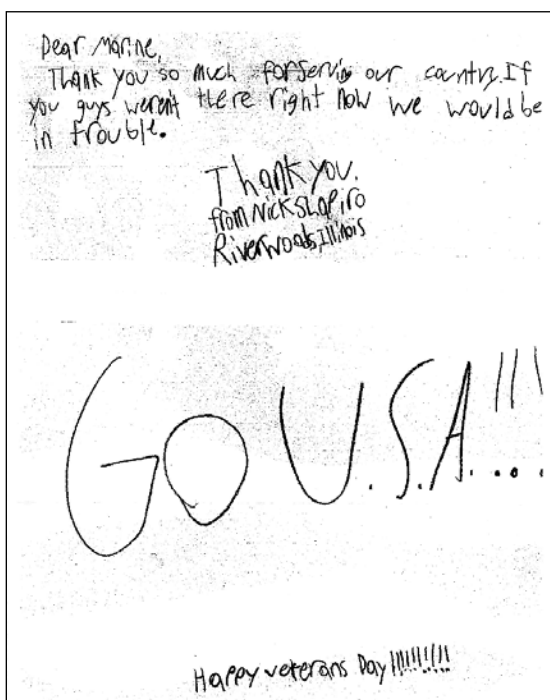 Dear Marine,
Thank you so much for serving our country. If
you guys weren't there right now we would be
in trouble.
Thank you.
from Nick Shapiro
Riverwoods, Illinois
GO U.S.A.!!!
Happy veterans Day!!!!!!!!!